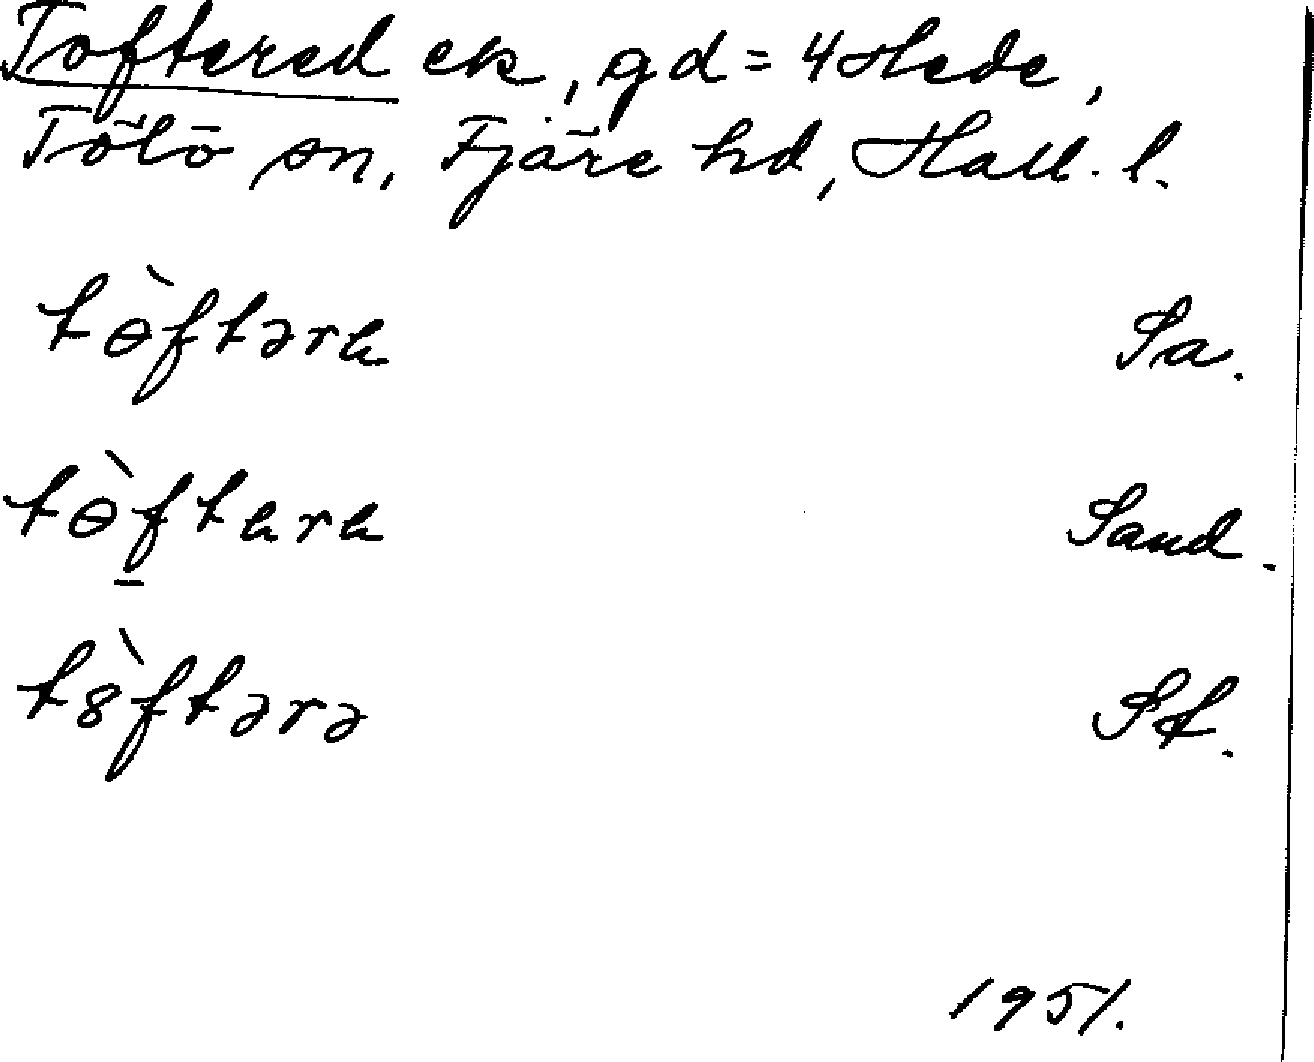 Toftered ek, gd = 4 Hede,
Tölö sn, Fjäre hd, Hall. l.
tɵ̀ftərɐ Sa.
tɵ̀ftɐrɐ Sand.
t8̀ftərə St.
1951.